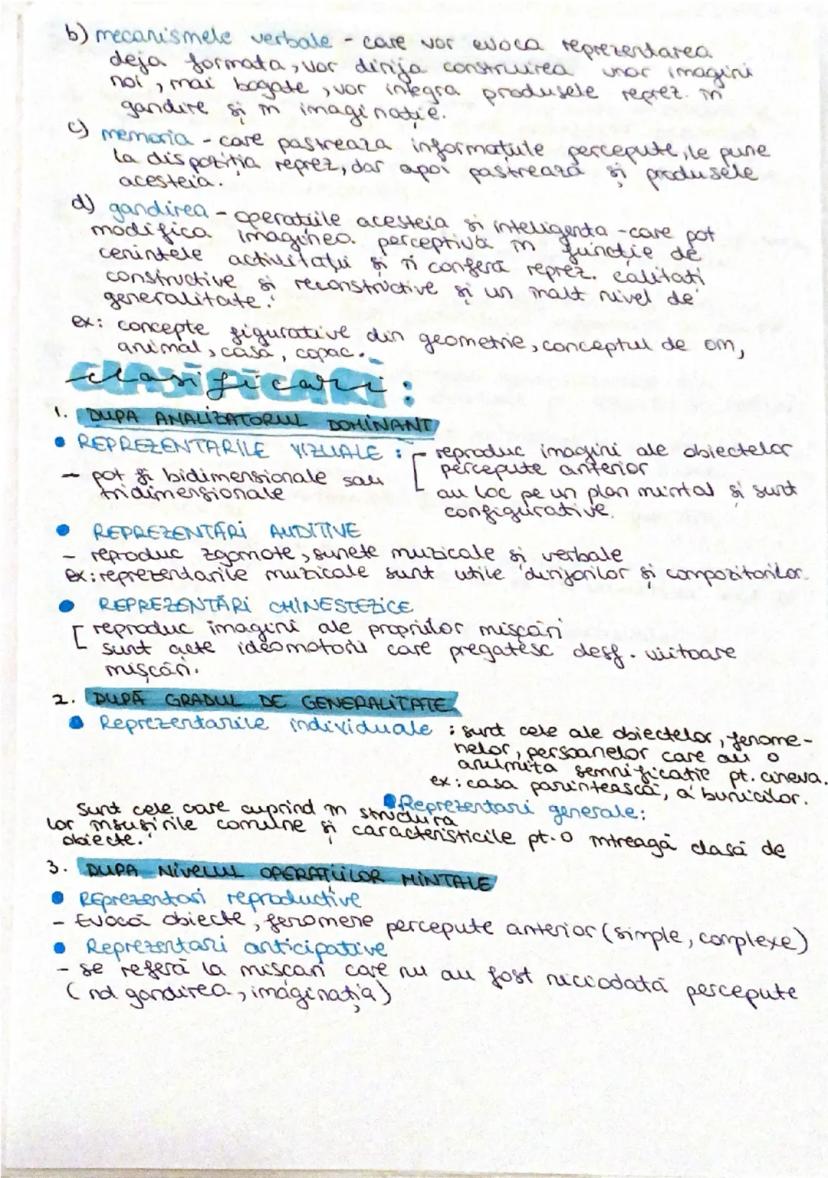 b) mecanismele verbale - care vor evoca reprezentarea
deja formata, vor dirija construirea unor imagini
noi, mai bogate, vor integra produsele reprez. în
gandire și în imaginație.
c) memoria - care pastreaza informațiile percepute, le pune
la dispoziția reprez, dar apoi pastrează și produsele
acesteia.
d) gandirea - operațiile acesteia si inteligenta - care pot
modifica imaginea perceptivă în funcție de
cerintele activitatu și îi conferă reprez. calitati
constructive și reconstructive și un inalt nivel de
generalitate.
ex: concepte figurative din geometrie, conceptul de om,
animal, casă, copac.
clasificari:
1. DUPA ANALIZATORUL DOMINANT
• REPREZENTARILE VIZUALE : reproduc imagini ale obiectelor
percepute anterior
- pot fi bidimensionale sau
tridimensionale
au loc pe un plan mintal și sunt
configurative.
• REPREZENTĂRI AUDITIVE
- reproduc zgomote, sunete muzicale și verbale
ex: reprezentarile muzicale sunt utile dirijorilor și compozitorilor.
• REPREZENTĂRI CHINESTEZICE
[ reproduc imagini ale propriilor mișcări
sunt acte ideomotorii care pregatesc desf. viitoare
mișcări.
2. DUPĂ GRADUL DE GENERALITATE
• Reprezentarile individuale : sunt cele ale obiectelor, fenome-
nelor, persoanelor care au o
anumita semnificatie pt. cineva.
ex: casa parintească, a bunicilor.
• Reprezentari generale:
Sunt cele care cuprind în structura
lor însusirile comune și caracteristicile pt. o intreagă clasă de
obiecte.
3. DUPA NIVELUL OPERAȚIILOR MINTALE
• Reprezentari reproductive
- Evocă obiecte, fenomene percepute anterior (simple, complexe)
• Reprezentari anticipative
- se referă la miscari care nu au fost niciodată percepute
(rol gandirea, imaginația)